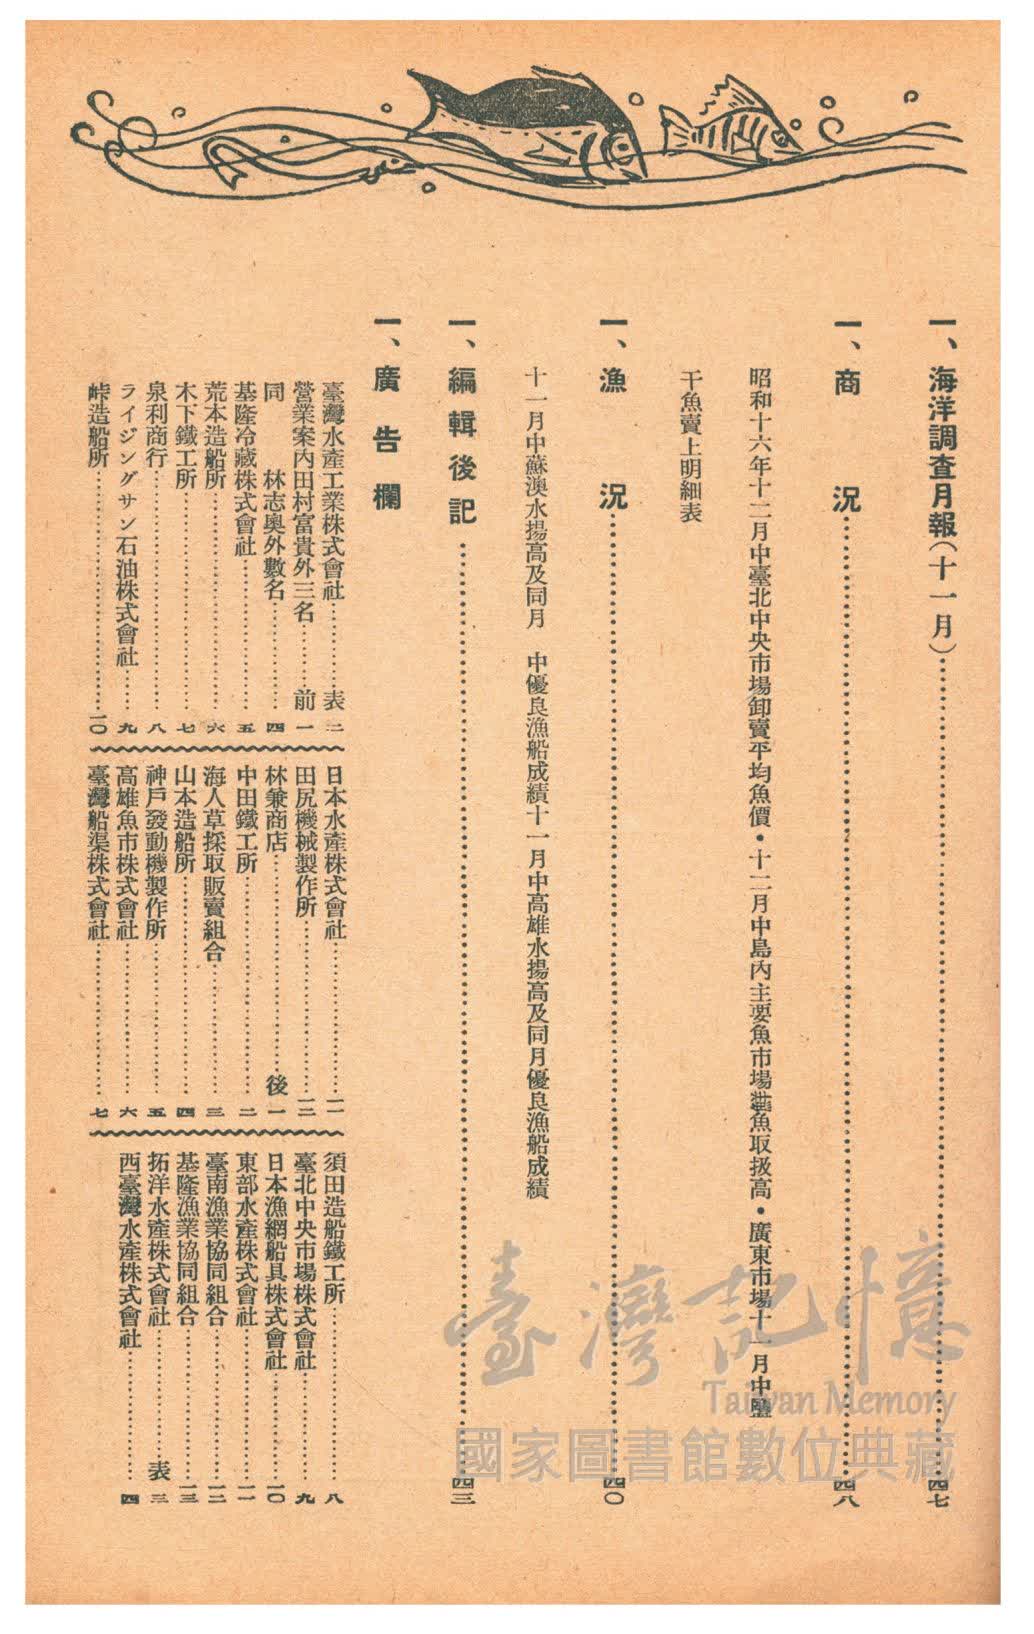 一、海洋調査月報(十一月)……四七
一、商況……四八
昭和十六年十二月中臺北中央市場卸賣平均魚價・十二月中島內主要魚市場鮮魚取扱高・廣東市場十一月中鹽
干魚賣上明細表
一、漁況……四〇
十一月中蘇澳水揚高及同月 中優良漁船成績十一月中高雄水揚高及同月優良漁船成績
一、編輯後記……四三
一、廣告欄
臺灣水產工業株式會社……表二
營業案內田村富貴外三名……前一
同 林志奧外數名……四
基隆冷藏株式會社……五
荒本造船所……六
木下鐵工所……七
泉利商行……八
ライジングサン石油株式會社……九
峠造船所……一〇
日本水產株式會社……一一
田尻機械製作所……一二
林兼商店……後一
中田鐵工所……二
海人草採取販賣組合……三
山本造船所……四
神戶發動機製作所……五
高雄魚市株式會社……六
臺灣船渠株式會社……七
須田造船鐵工所……八
臺北中央市場株式會社……九
日本漁網船具株式會社……一〇
東部水產株式會社……一一
臺南漁業協同組合……一二
基隆漁業協同組合……一三
拓洋水產株式會社……表三
西臺灣水產株式會社……四
臺灣記憶
Taiwan Memory
國家圖書館數位典藏